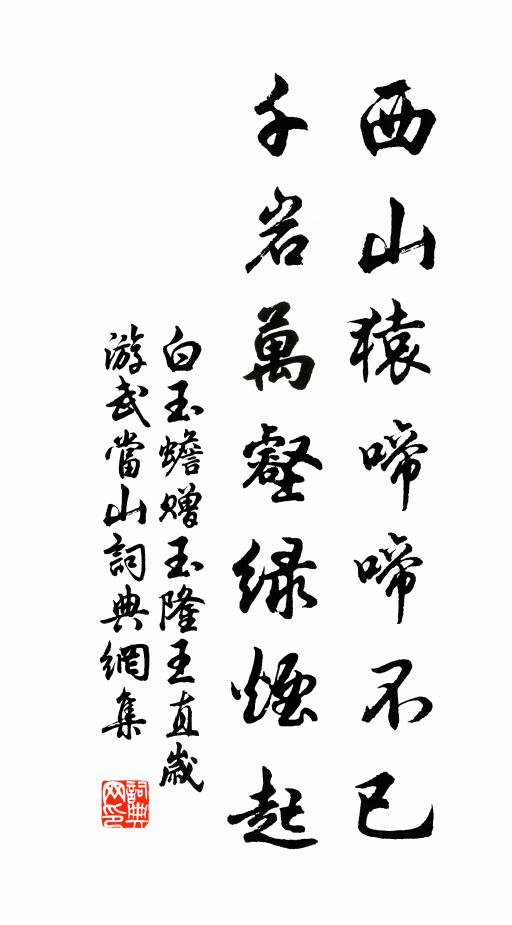 西山猿啼啼不已
千岩萬壑绿煙起
白玉蟾赠玉隆王直歲
游武當山詞典網集
詞典网印